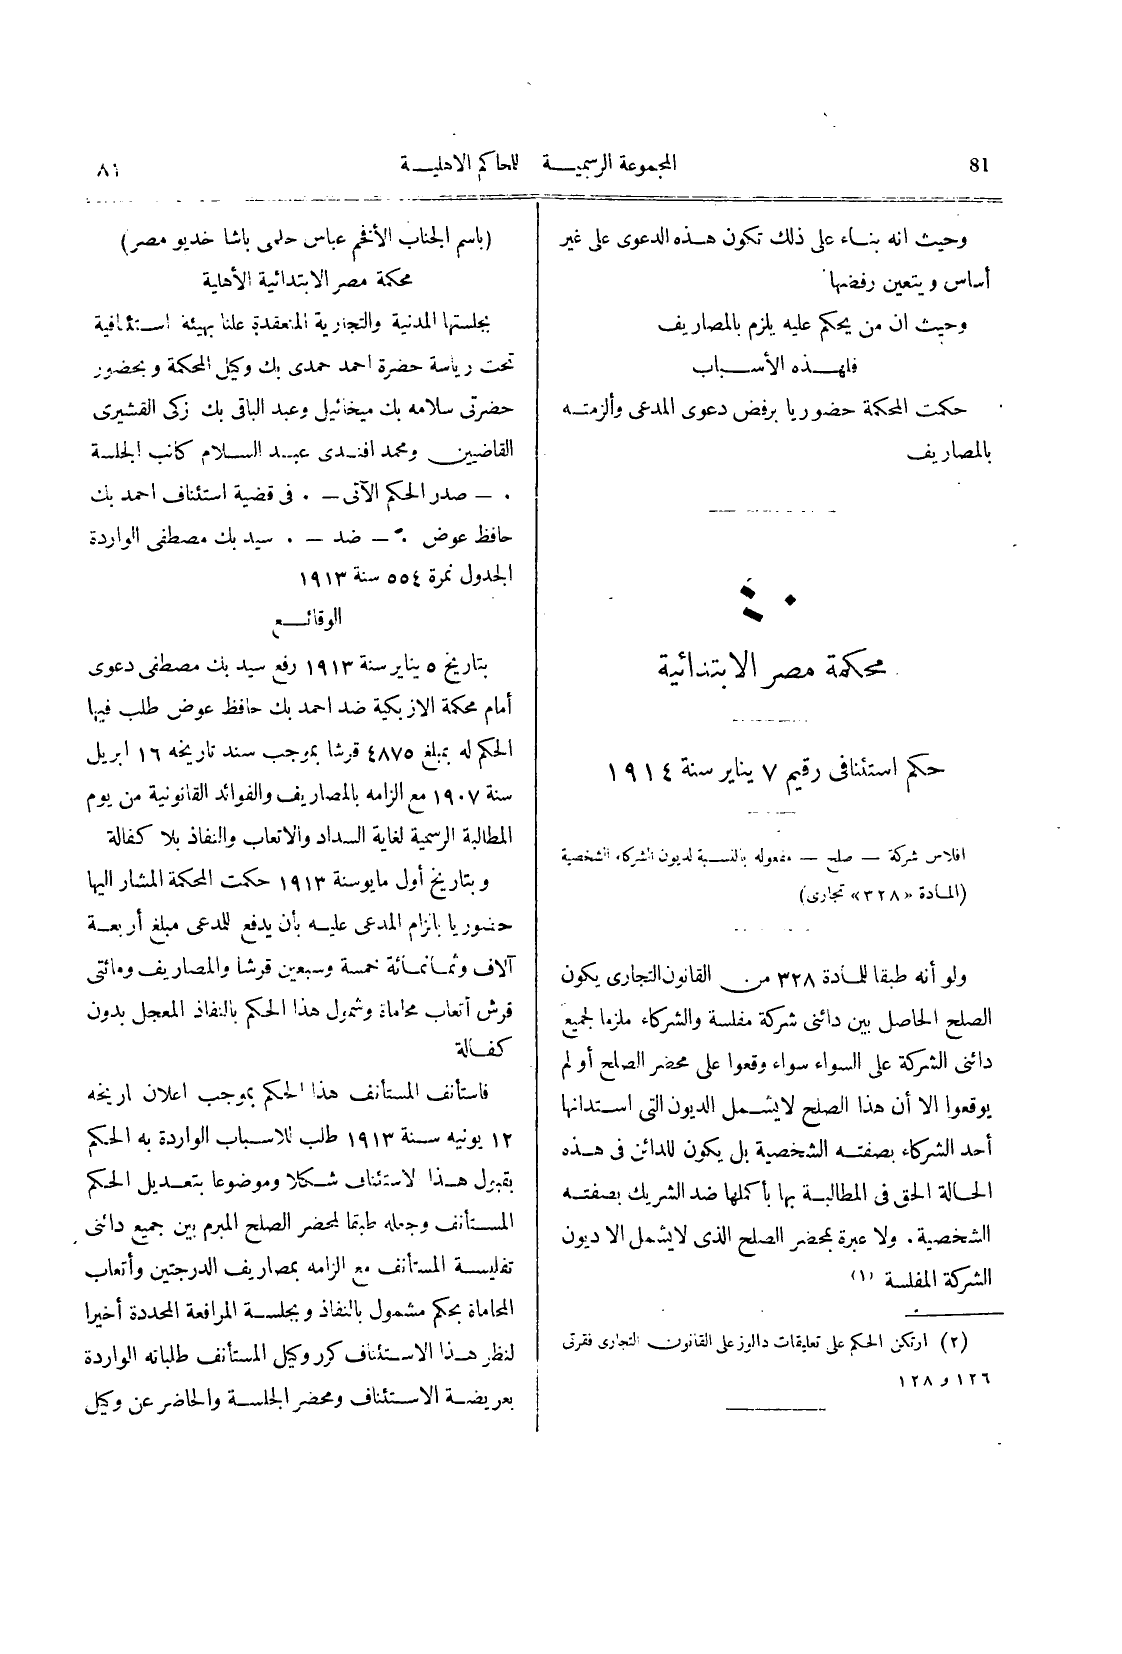 81
المجموعة الرسمية للمحاكم الاهلية
٨١
وحيث انه بناء على ذلك تكون هذه الدعوى على غير
أساس ويتعين رفضها
وحيث ان من يحكم عليه يلزم بالمصاريف
فلهذه الأسباب
حكمت المحكمة حضوريا برفض دعوى المدعى وألزمته
بالمصاريف
٤٠
محكمة مصر الابتدائية
حكم استئنافى رقيم ٧ يناير سنة ١٩١٤
افلاس شركة — صلح — مفعوله بالنسبة لديون الشركاء الشخصية
(المادة «٣٢٨» تجارى)
ولو أنه طبقا للمادة ٣٢٨ من القانون التجارى يكون
الصلح الحاصل بين دائنى شركة مفلسة والشركاء ملزما لجميع
دائنى الشركة على السواء سواء وقعوا على محضر الصلح أو لم
يوقعوا الا أن هذا الصلح لايشمل الديون التى استدانها
أحد الشركاء بصفته الشخصية بل يكون للدائن فى هذه
الحالة الحق فى المطالبة بها بأكملها ضد الشريك بصفته
الشخصية. ولا عبرة بمحضر الصلح الذى لايشمل الا ديون
الشركة المفلسة (١)
(٢) ارتكن الحكم على تعليقات دالوز على القانون التجارى فقرتى
١٢٦ و ١٢٨
(باسم الجناب الأفخم عباس حلمى باشا خديو مصر)
محكمة مصر الابتدائية الأهلية
بجلستها المدنية والتجارية المنعقدة علنا بهيئة استئنافية
تحت رياسة حضرة احمد حمدى بك وكيل المحكمة وبحضور
حضرتى سلامه بك ميخائيل وعبد الباقى بك زكى القشيرى
القاضيين ومحمد افندى عبد السلام كاتب الجلسة
. — صدر الحكم الآتى — . فى قضية استئناف احمد بك
حافظ عوض . — ضد — . سيد بك مصطفى الواردة
الجدول نمرة ٥٥٤ سنة ١٩١٣
الوقائع
بتاريخ ٥ يناير سنة ١٩١٣ رفع سيد بك مصطفى دعوى
أمام محكمة الازبكية ضد احمد بك حافظ عوض طلب فيها
الحكم له بمبلغ ٤٨٧٥ قرشا بموجب سند تاريخه ١٦ ابريل
سنة ١٩٠٧ مع الزامه بالمصاريف والفوائد القانونية من يوم
المطالبة الرسمية لغاية السداد والاتعاب والنفاذ بلا كفالة
وبتاريخ أول مايو سنة ١٩١٣ حكمت المحكمة المشار اليها
حضوريا بالزام المدعى عليه بأن يدفع للمدعى مبلغ أربعة
آلاف وثمانمائة خمسة وسبعين قرشا والمصاريف ومائتى
قرش أتعاب محاماة وشمول هذا الحكم بالنفاذ المعجل بدون
كفالة
فاستأنف المستأنف هذا الحكم بموجب اعلان اريخه
١٢ يونيه سنة ١٩١٣ طلب للاسباب الواردة به الحكم
بقبول هذا لاستئناف شكلا وموضوعا بتعديل الحكم
المستأنف وجعله طبقا لمحضر الصلح المبرم بين جميع دائنى
تفليسة المستأنف مع الزامه بمصاريف الدرجتين وأتعاب
المحاماة بحكم مشمول بالنفاذ وبجلسة المرافعة المحددة أخيرا
لنظر هذا الاستئناف كرر وكيل المستأنف طلباته الواردة
بعريضة الاستئناف ومحضر الجلسة والحاضر عن وكيل